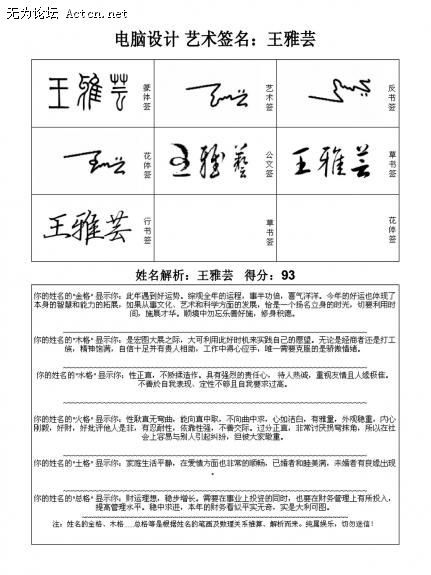 无为论坛 Actcn.net
电脑设计 艺术签名：王雅芸
王雅芸 篆体签
艺术签
反书签
花体签
公文签
王雅芸 草书签
王雅芸 行书签
草书签
花体签
姓名解析：王雅芸 得分：93
你的姓名的"金格"显示你：此年遇到好运势。综观全年的运程，事半功倍，喜气洋洋。今年的好运也体现了
本身的智慧和能力的拓展，如果从事文化、艺术和科学方面的发展，恰是一个扬名立身的时光，切要利用时
间，施展才华。顺境中勿忘乐善好施，修身积德。
你的姓名的"木格"显示你：是宏图大展之际，大可利用此好时机来实践自己的愿望。无论是经商者还是打工
族，精神饱满，自信十足并有贵人相助，工作中得心应手，唯一需要克服的是骄傲情绪。
你的姓名的"水格"显示你：性正直，不矫揉造作。具有强烈的责任心， 待人热诚，重视友情且人缘极佳。
不善於自我表现、定性不够且自我要求过高。
你的姓名的"火格"显示你：性耿直无弯曲，能向直中取，不向曲中求，心如洁白，有雅量，外观稳重，内心
刚毅，好财，好批评他人是非，有忍耐性，依靠性强，不善交际。过分正直，非常讨厌拐弯抹角，所以在社
会上容易与别人引起纠纷，但被大家敬重。
你的姓名的"土格"显示你：家庭生活平静，在爱情方面也非常的顺畅，已婚者和睦美满，未婚者有良缘出现
。
你的姓名的"总格"显示你：财运理想，稳步增长。需要在事业上投资的同时，也要在财务管理上有所投入，
提高管理水平。稳中求进，本年的财务看似平实无奇，实是大利可图。
注：姓名的金格、木格……总格等是根据姓名的笔画及数理关系推算、解析而来。纯属娱乐，切勿迷信！